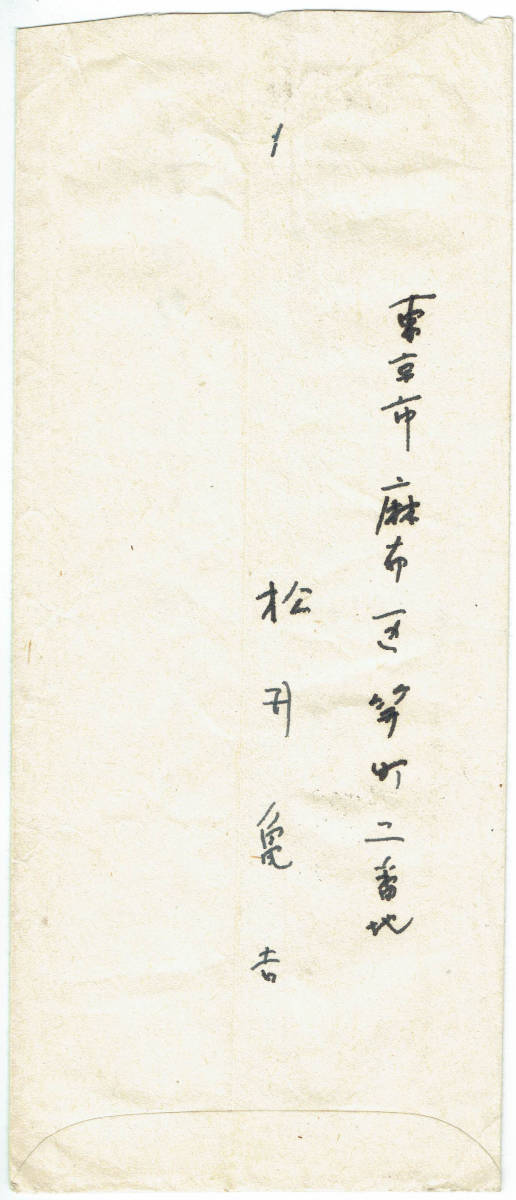 東京市麻布区笄町二番地
松井亀吉